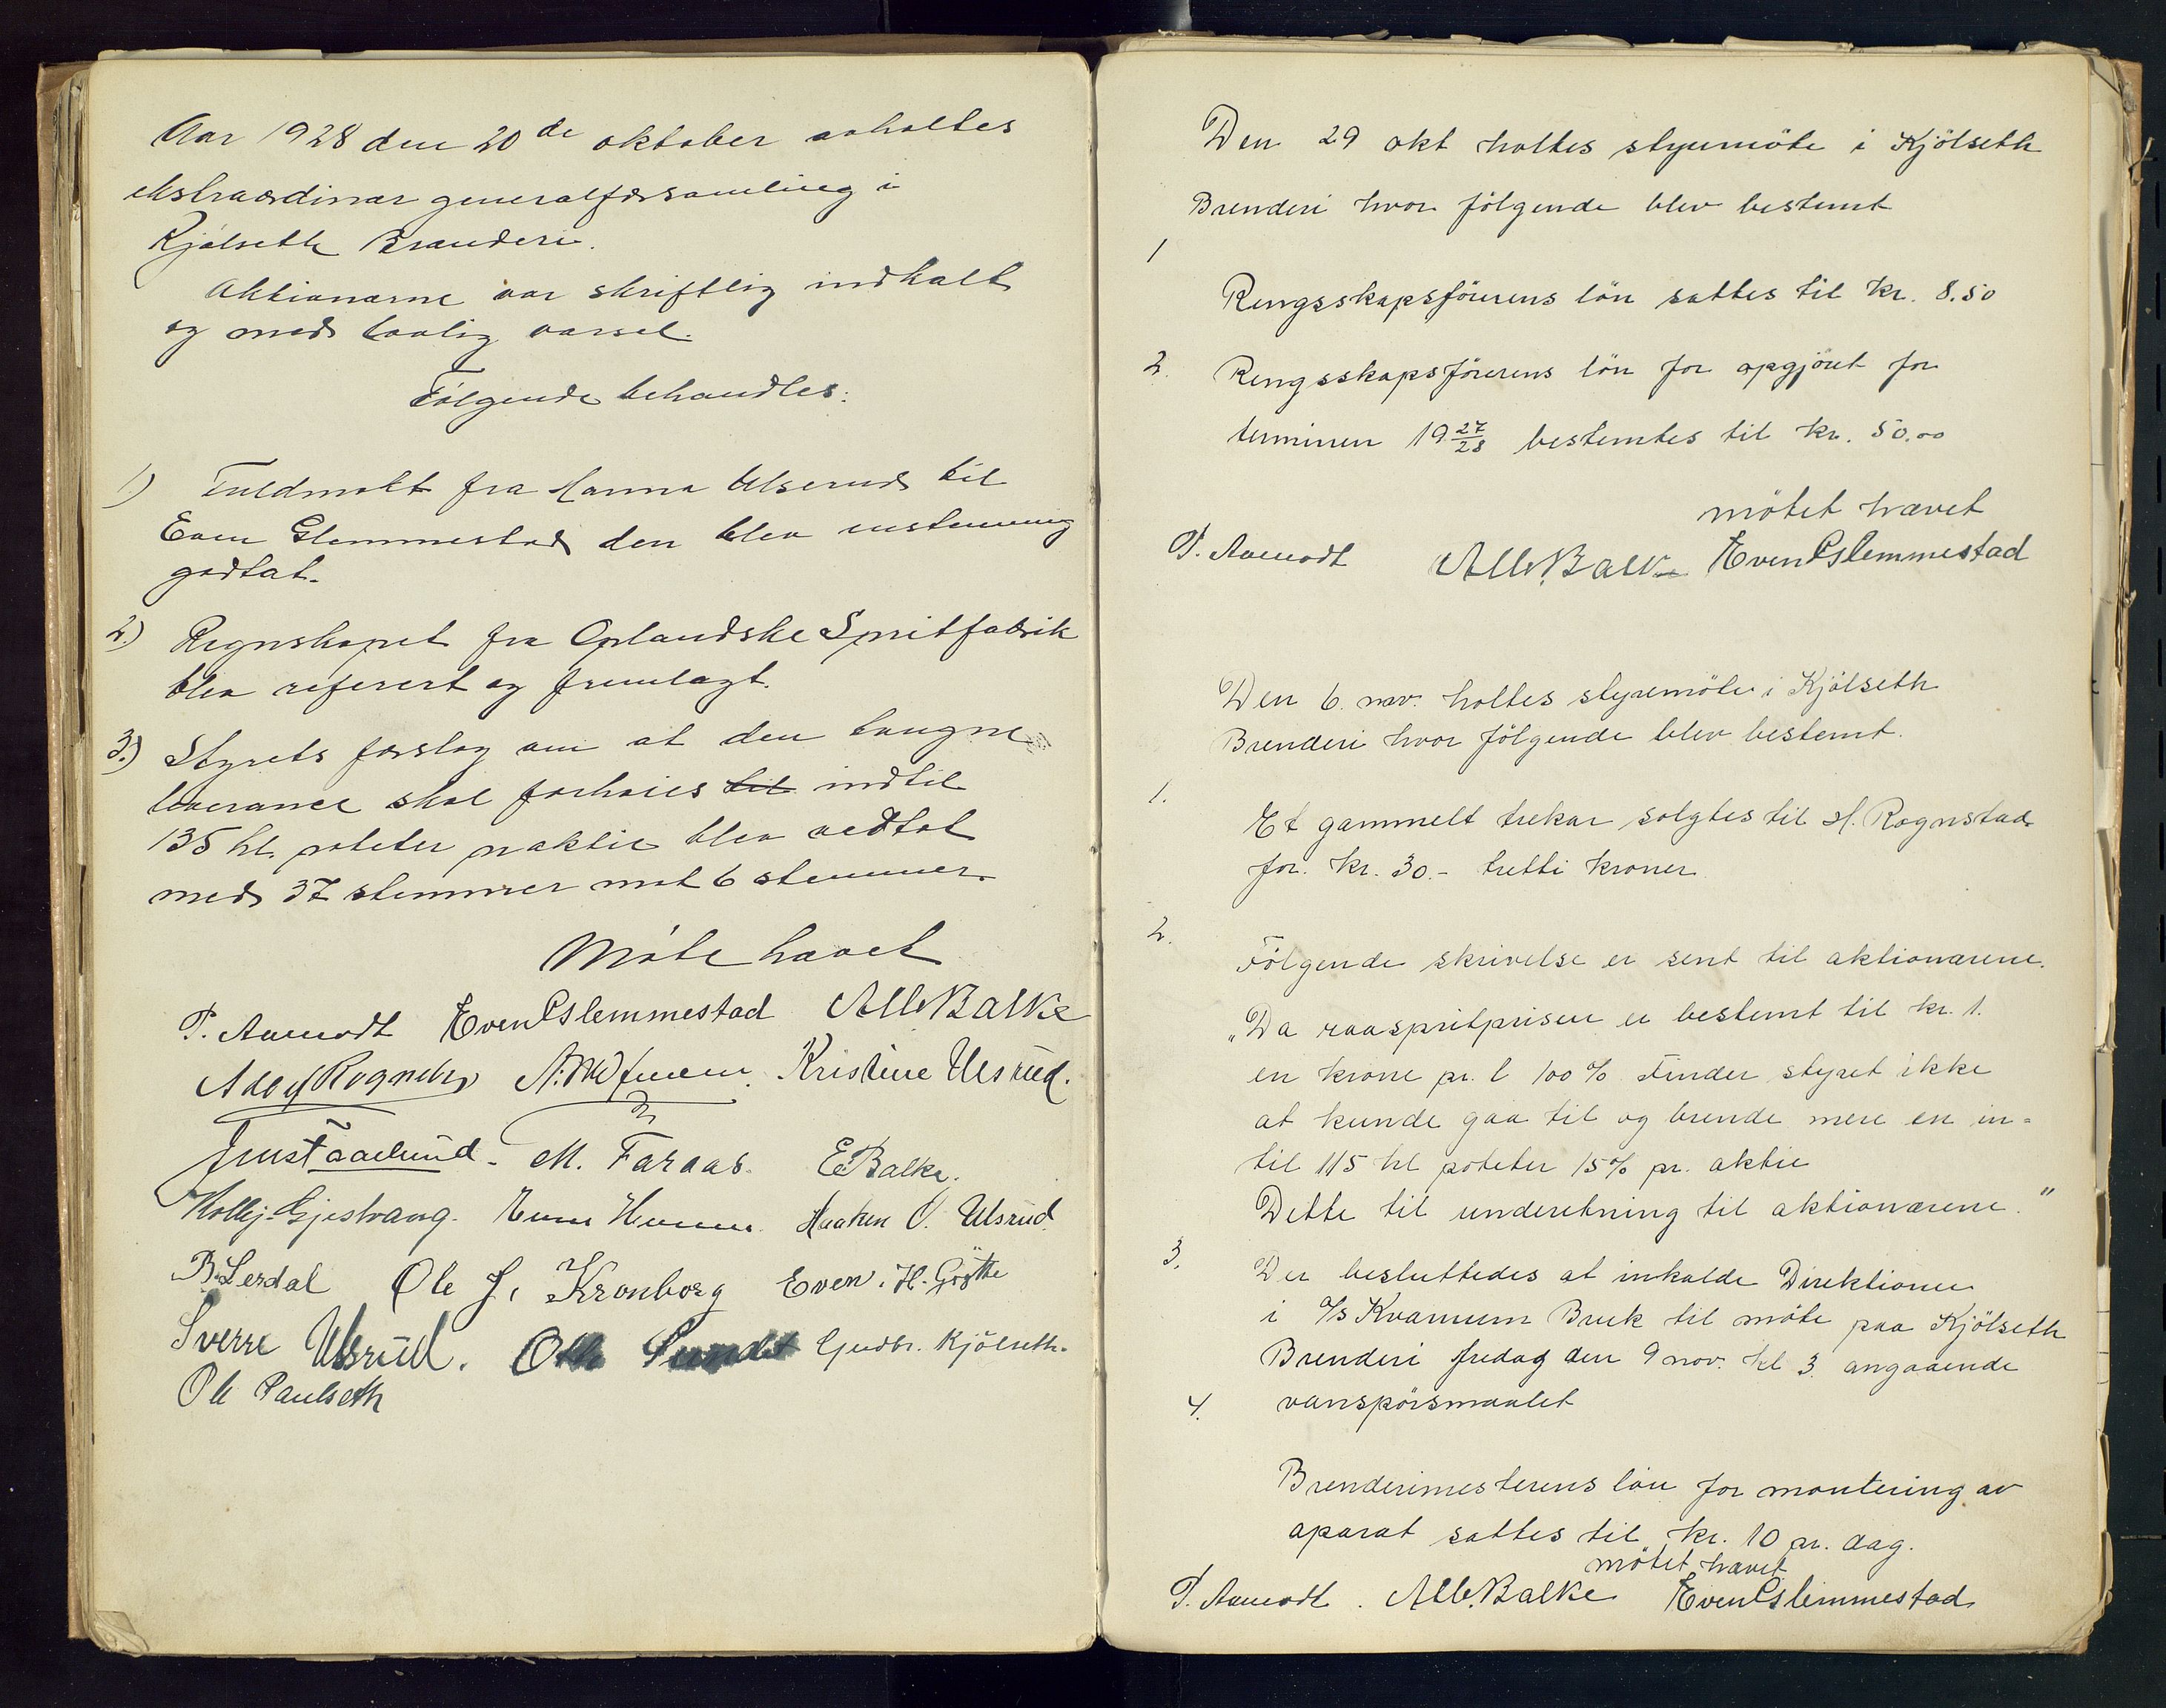 Aar 1928 den 20de oktober avholtes
ekstraordinær generalforsamling i
Kjølseth Brænderi.
Aktionærne var skriftlig indkalt
og med lovlig varsel.
Følgende behandles:
1) Fuldmakt fra Hanna Ulsrud til
Even Glemmestad den blev enstemmig
godtat.
2.) Regnskapet fra Oplandske Spritfabrik
blev referert og fremlagt.
3.) Styrets forslag om at den tvugne
leverance skal forhøies til indtil
135 hl. poteter praktie blev vedtat
med 37 stemmer mot 6 stemmer.
Møte hævet
P. Aamodt Even Glemmestad Alb. Balke
Adolf Rognstad Kristine Ulsrud.
M. Faraas. E. Balke.
Gjestvang. Haaken O. Ulsrud
B. Lerdal Ole J. Kronborg Even. H. Grøtte
Sverre Ulsrud. Otto Sundt Gudbr. Kjölseth.
Ole Paulseth
Den 29 okt holtes styremöte i Kjölseth
Brenderi hvor fölgende blev bestemt
1
Rengsskapsförerens lön sattes til kr. 8.50
2. Rengsskapsförerens lön for opgjöret for
terminen 19 27/28 bestemtes til kr. 50.00
mötet hævet
P. Aamodt Alb. Balke Even Glemmestad
Den 6. nov. holtes styremöte i Kjölseth
Brenderi hvor fölgende blev bestemt.
1.
Et gammelt trekar solgtes til H. Rognstad
for. kr. 30.- tretti kroner
2.
Fölgende skrivelse er sent til aktionærene.
"Da raaspritprisen er bestemt til kr. 1.
en krone pr. l 100% Finder styret ikke
at kunde gaa til og brende mere en in=
til 115 hl poteter 15% pr. aktie
Dette til underetning til aktionærene."
3.
Der besluttedes at inkalde Direktionen
i A/S Kvamum Bruk til möte paa Kjölseth
Brenderi fredag den 9 nov. kl 3. angaaende
4. vanspörsmaalet
Brenderimesterens lön for montering av
aparat sattes til kr. 10 pr. dag.
mötet hævet
P. Aamodt. Alb. Balke Even Glemmestad